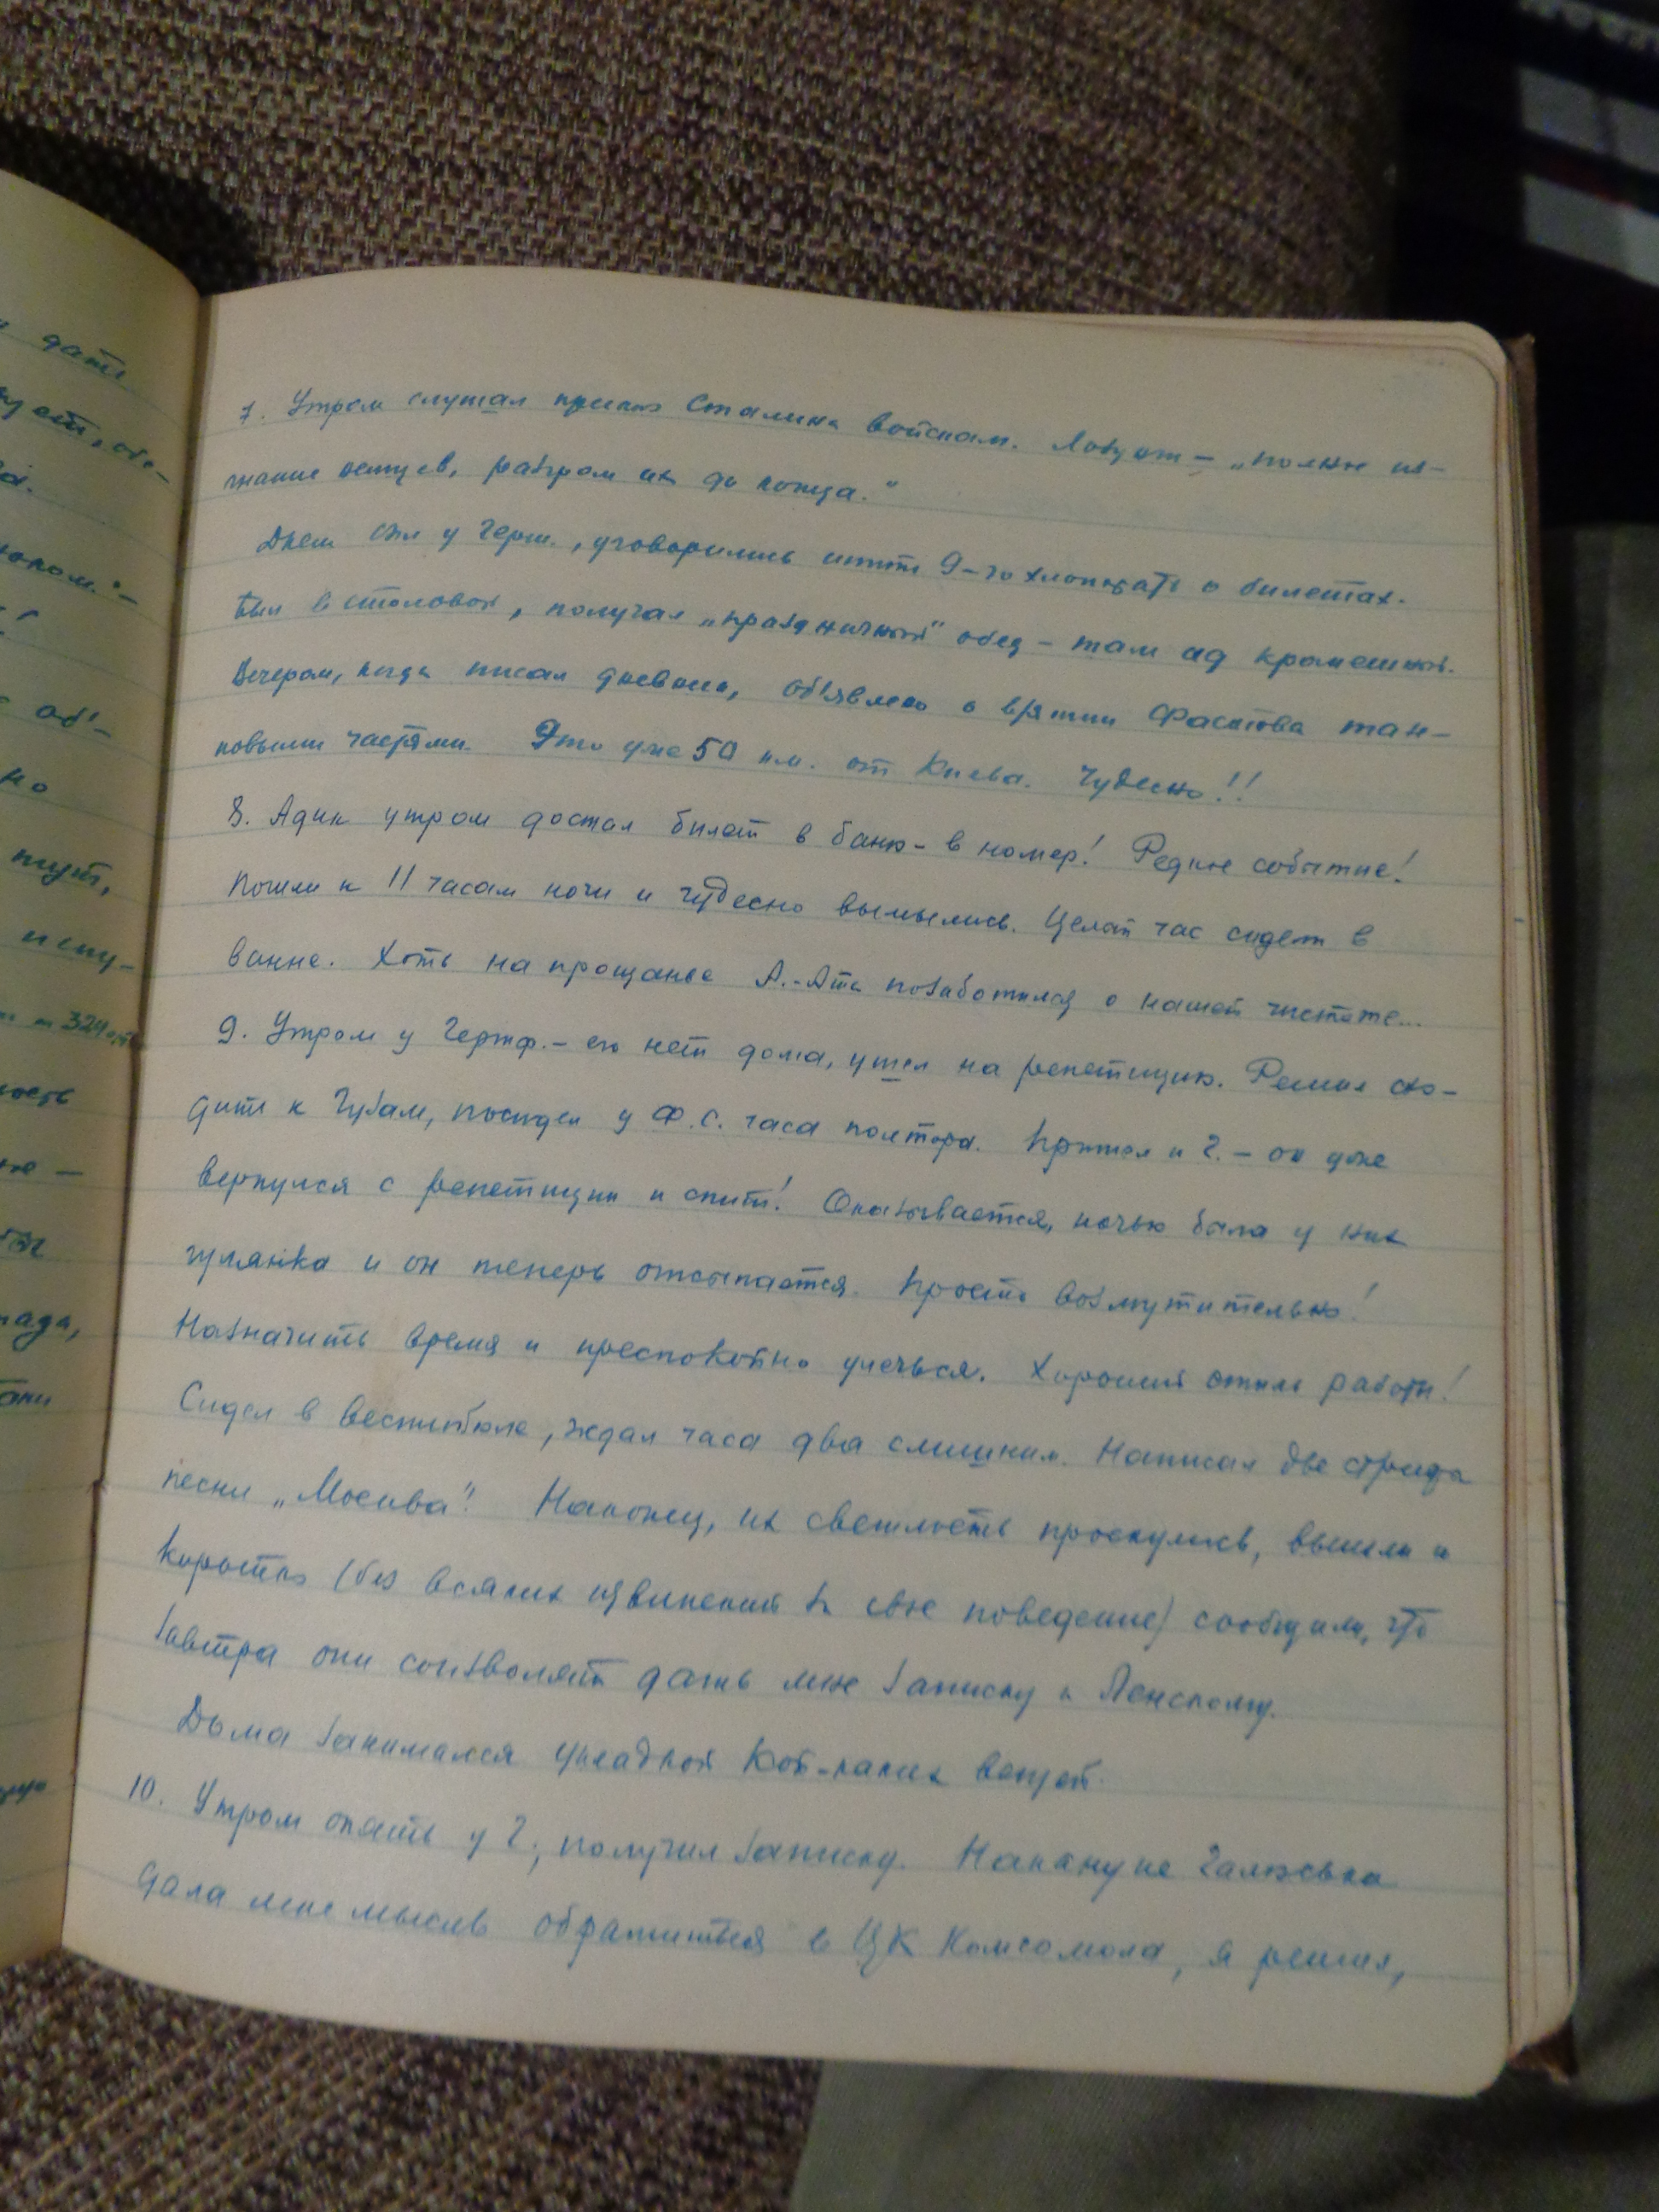 дать
7. Утром слушал приказ Сталина войскам. Лозунг – „полное из-
гнание немцев, разгром их до конца."
Днем был у Герш., уговорились идти 9-го хлопотать о билетах.
Был в столовой, получал „праздничный" обед – там ад кромешный.
Вечером, когда писал дневник, объявлено о взятии Фастова тан-
ковыми частями. Это уже 50 км. от Киева. Чудесно!!
8. Адик утром достал билет в баню – в номер! Редкое событие!
Пошли к 11 часам ночи и чудесно вымылись. Целый час сидели в
ванне. Хоть на прощанье А.-Ата позаботилась о нашей чистоте...
9. Утром у Гершф. – его нет дома, ушел на репетицию. Решил схо-
дить к Губам, посидел у Ф.С. часа полтора. Пришел к Г. – он уже
вернулся с репетиции и спит! Оказывается, ночью была у них
гулянка и он теперь отсыпается. Просто возмутительно!
Назначить время и преспокойно улечься. Хороший стиль работы!
Сидел в вестибюле, ждал часа два слишком. Написал две строфы
песни „Москва"! Наконец, их светлость проснулись, вышли и
коротко (без всяких извинений за свое поведение) сообщили, что
завтра они соизволят дать мне записку к Ленскому.
Дома занимался укладкой кой-каких вещей.
10. Утром опять у Г., получил записку. Накануне Галковская
дала мне мысль обратиться в ЦК Комсомола, я решил,